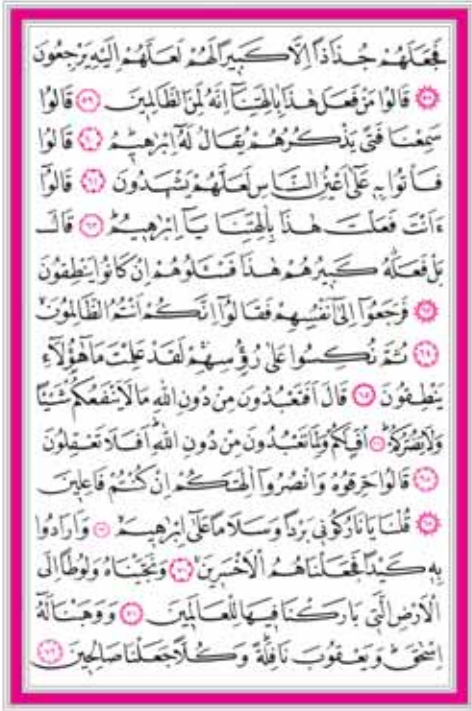 فَجَعَلَهُمْ جُذَاذًا اِلَّا كَبِيرًا لَهُمْ لَعَلَّهُمْ اِلَيْهِ يَرْجِعُونَ
﴿٥٨﴾ قَالُوا مَنْ فَعَلَ هٰذَا بِاٰلِهَتِنَٓا اِنَّهُ لَمِنَ الظَّالِمِينَ ﴿٥٩﴾ قَالُوا
سَمِعْنَا فَتًى يَذْكُرُهُمْ يُقَالُ لَهُٓ اِبْرٰهِيمُ ﴿٦٠﴾ قَالُوا
فَأْتُوا بِهِ عَلٰٓى اَعْيُنِ النَّاسِ لَعَلَّهُمْ يَشْهَدُونَ ﴿٦١﴾ قَالُٓوا
ءَاَنْتَ فَعَلْتَ هٰذَا بِاٰلِهَتِنَا يَٓا اِبْرٰهِيمُ ﴿٦٢﴾ قَالَ
بَلْ فَعَلَهُ كَبِيرُهُمْ هٰذَا فَسْـَٔلُوهُمْ اِنْ كَانُوا يَنْطِقُونَ
﴿٦٣﴾ فَرَجَعُٓوا اِلٰٓى اَنْفُسِهِمْ فَقَالُٓوا اِنَّكُمْ اَنْتُمُ الظَّالِمُونَ
﴿٦٤﴾ ثُمَّ نُكِسُوا عَلٰى رُؤُسِهِمْ لَقَدْ عَلِمْتَ مَا هٰٓؤُلَٓاءِ
يَنْطِقُونَ ﴿٦٥﴾ قَالَ اَفَتَعْبُدُونَ مِنْ دُونِ اللّٰهِ مَا لَا يَنْفَعُكُمْ شَيْـًٔا
وَلَا يَضُرُّكُمْ ﴿٦٦﴾ اُفٍّ لَكُمْ وَلِمَا تَعْبُدُونَ مِنْ دُونِ اللّٰهِ اَفَلَا تَعْقِلُونَ
﴿٦٧﴾ قَالُوا حَرِّقُوهُ وَانْصُرُٓوا اٰلِهَتَكُمْ اِنْ كُنْتُمْ فَاعِلِينَ
﴿٦٨﴾ قُلْنَا يَا نَارُ كُونِي بَرْدًا وَسَلَامًا عَلٰٓى اِبْرٰهِيمَ ﴿٦٩﴾ وَاَرَادُوا
بِهِ كَيْدًا فَجَعَلْنَاهُمُ الْاَخْسَرِينَ ﴿٧٠﴾ وَنَجَّيْنَاهُ وَلُوطًا اِلَى
الْاَرْضِ الَّتِي بَارَكْنَا فِيهَا لِلْعَالَمِينَ ﴿٧١﴾ وَوَهَبْنَا لَهُٓ
اِسْحٰقَ وَيَعْقُوبَ نَافِلَةً وَكُلًّا جَعَلْنَا صَالِحِينَ ﴿٧٢﴾